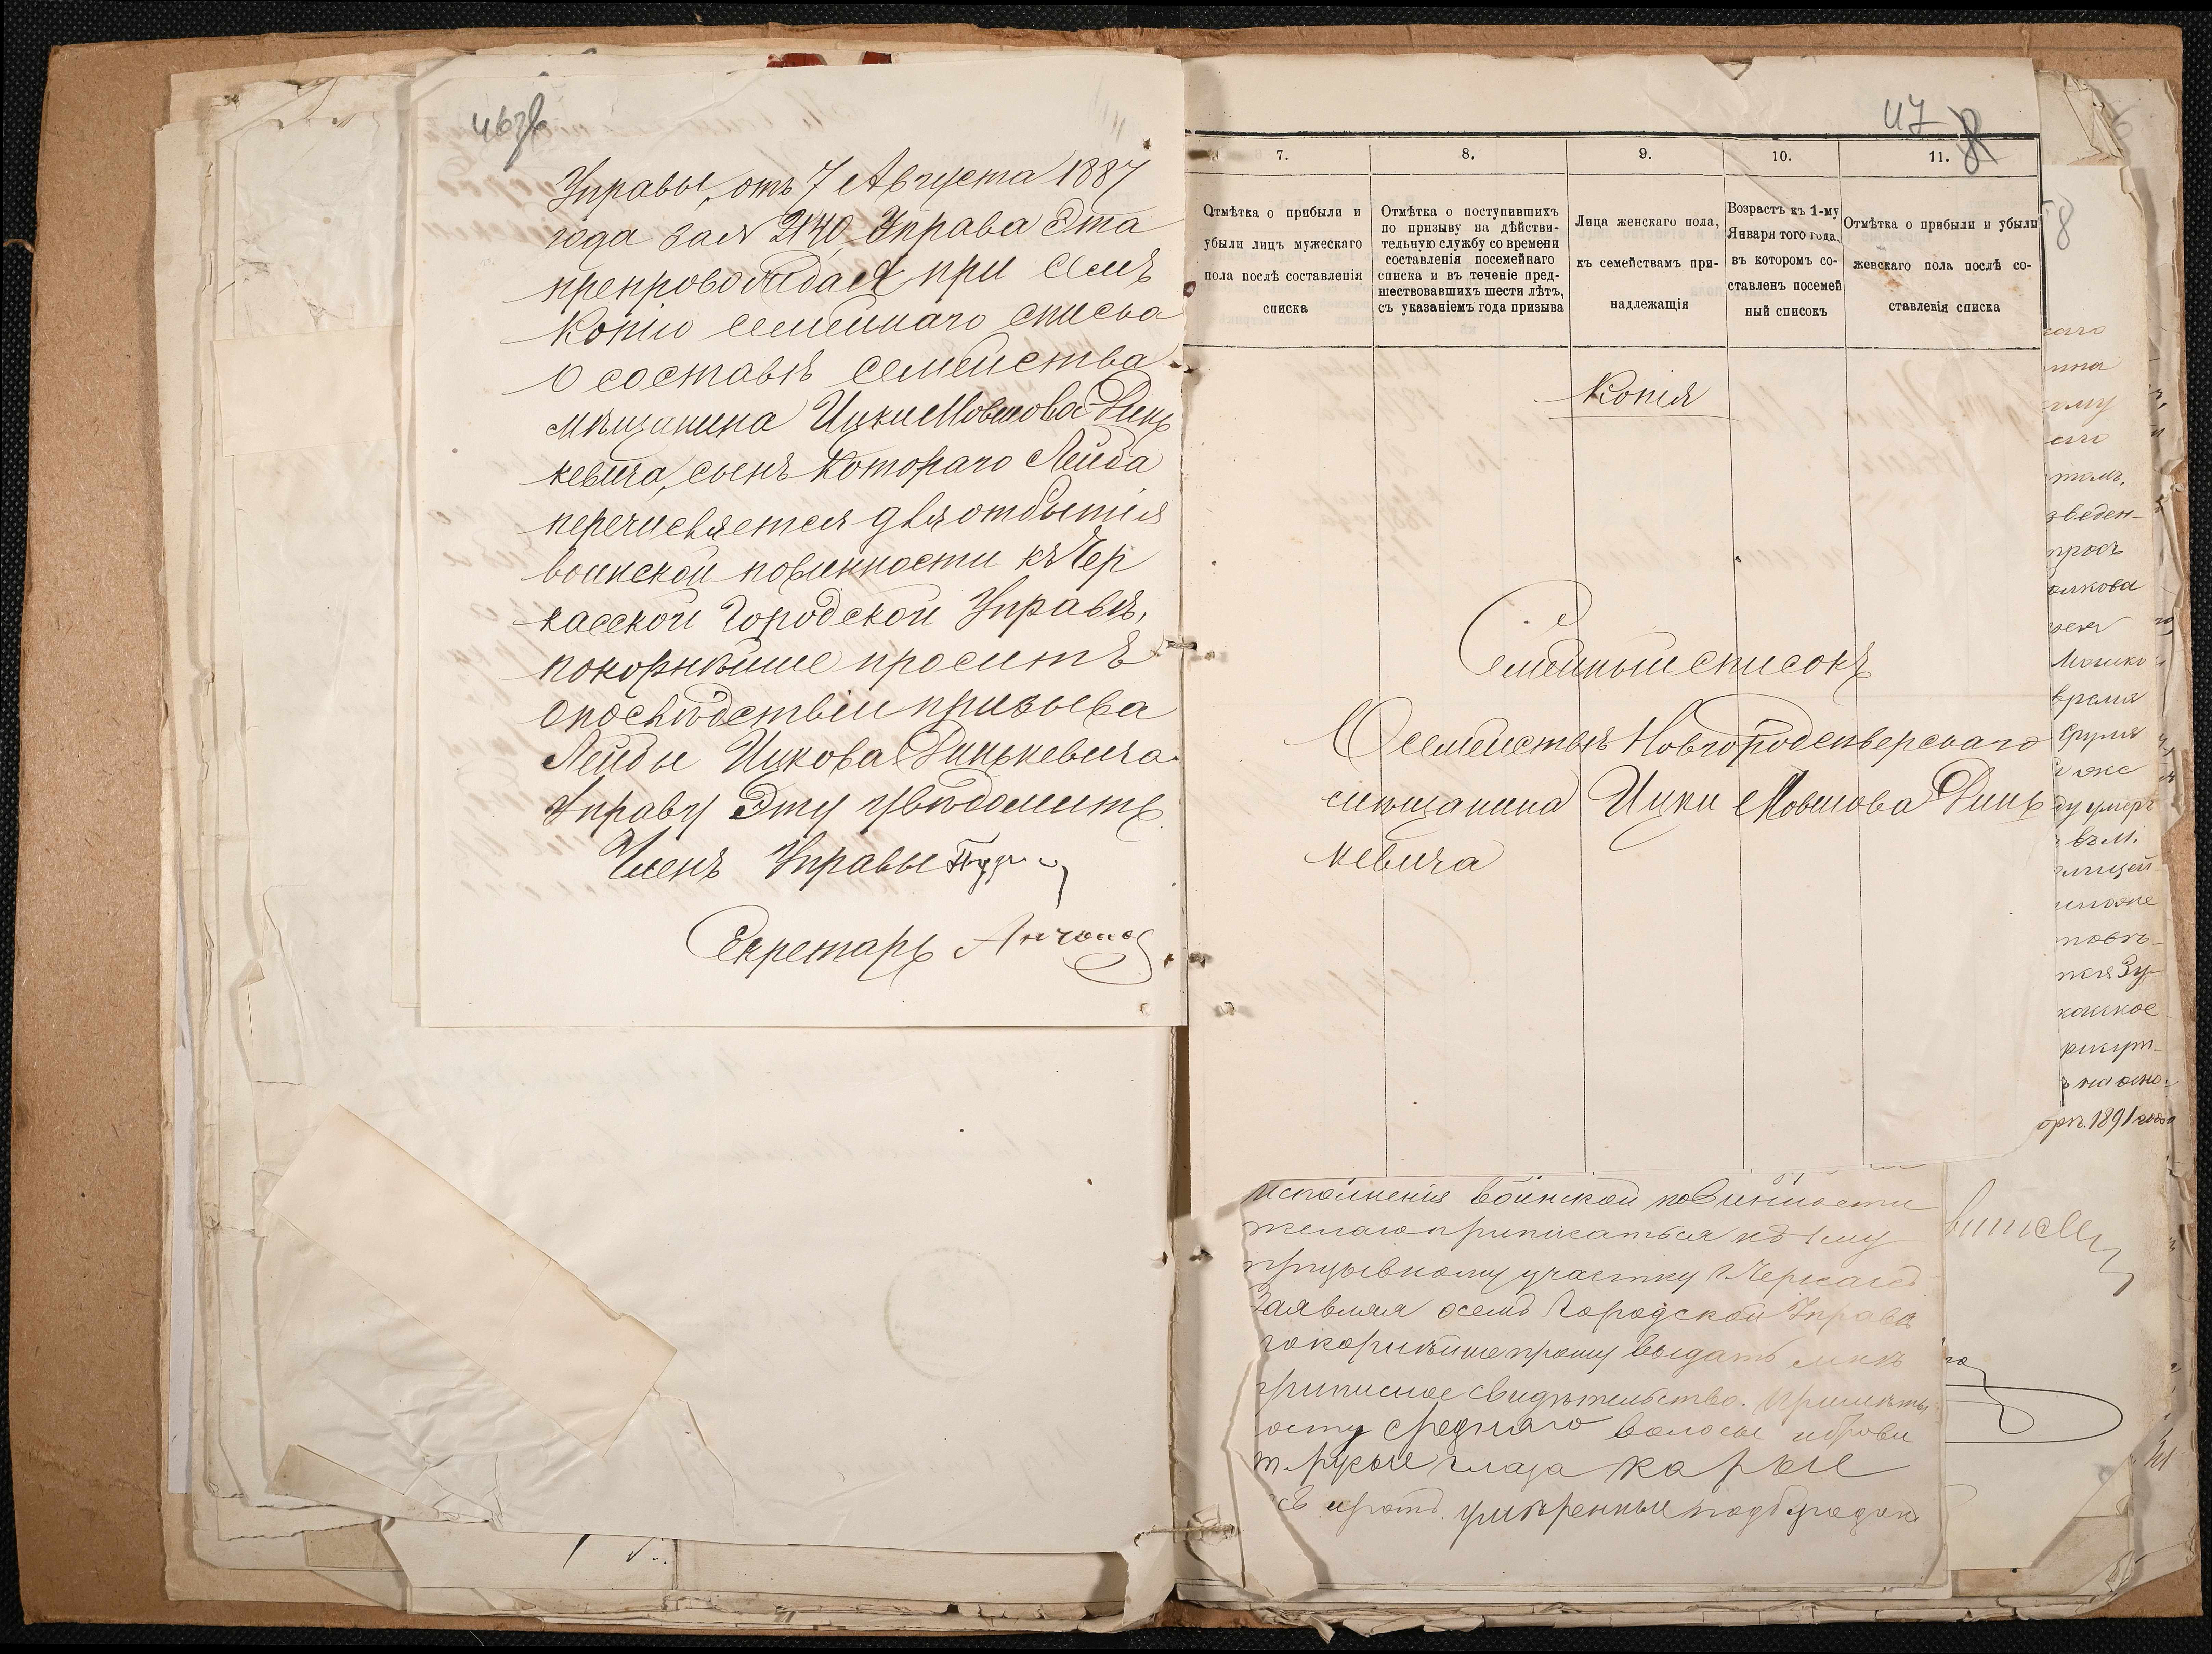 46 об
Управы, отъ 7 Августа 1887
года за № 2140, Управа Эта
препровождая при семъ
копію семейнаго списка
о составѣ семейства
мѣщанина Ицки Мовшова Динь
кевича, сынъ котораго Лейба
перечисляется для отбытія
воинской повинности къ Чер
касской Городской Управѣ,
покорнѣйше проситъ
о послѣдствіи призыва
Лейбы Ицкова Динькевича
Управу Эту увѣдомить
Членъ Управы
Секретарь
47
7. 8. 9. 10. 11.
Отмѣтка о прибыли и убыли лицъ мужескаго пола послѣ составленія списка
Отмѣтка о поступившихъ по призыву на дѣйстви-тельную службу со времени составленія посемейнаго списка и въ теченіе пред-шествовавшихъ шести лѣтъ, съ указаніемъ года призыва
Лица женскаго пола, къ семействамъ при-надлежащія
Возрастъ къ 1-му Января того года, въ которомъ со-ставленъ посемей ный списокъ
Отмѣтка о прибыли и убыли женскаго пола послѣ со-ставленія списка
Копія
Семейный списокъ
О семействѣ Новгородсѣверскаго
мѣщанина Ицки Мовшова Динь
кевича
исполненія воинской повинности
желаю приписаться къ 1му
призывному участку г. Черкассъ
Заявляя о семъ Городской Управѣ
покорнѣйше прошу выдать мнѣ
приписное свидѣтельство. Примѣты
росту средняго волосы и брови
т. русые глаза карые
ротъ умѣренные подбородокъ
58
зведен-
время
ду умеръ
1891 года